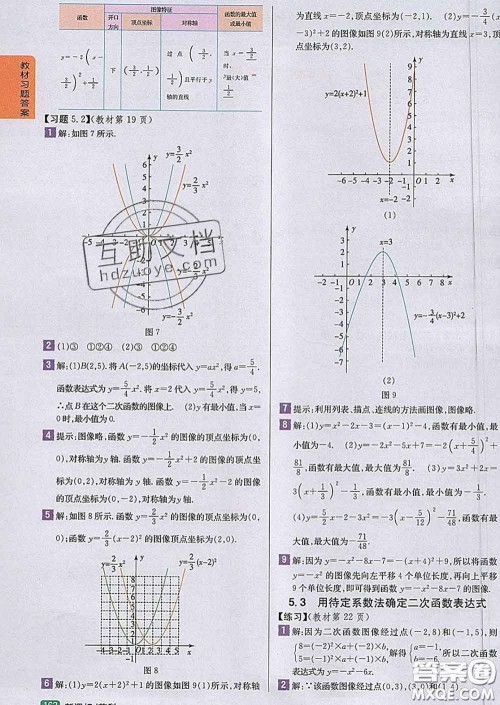 教材习题答案
图像特征
函数
开口方向
顶点坐标
对称轴
函数的最大值或最小值
y=-2(x-3/2)²+1/2
下
(3/2,1/2)
过点(3/2,1/2)且平行于y轴的直线
当x=3/2时,y最大(值)=1/2
【习题5.2】(教材第19页)
1 解:如图7所示.
y=3/2x²
y=2/3x²
y=-2/3x²
y=-3/2x²
图7
2 (1)③ ①②④ (2)③ ①②④
3 解:(1)B(2,5).将A(-2,5)的坐标代入y=ax²,得a=5/4.
函数表达式为y=5/4x².将x=2代入y=5/4x²,得y=5,
∴点B在这个二次函数的图像上.(2)有最小值.当x=
0时,最小值为0.
4 提示:图像略,函数y=-1/2x²的图像的顶点坐标为(0,
0),对称轴为y轴.函数y=-1/2x²-2的图像的顶点坐
标为(0,-2),对称轴为y轴.
5 解:如图8所示.函数y=2/3x²的图像的顶点坐标为(0,
0);函数y=2/3(x-2)²的图像的顶点坐标为(2,0).
y=2/3x²
y=2/3(x-2)²
图8
6 解:(1)y=2(x+2)²+1的图像如图9(1)所示,对称轴
为直线x=-2,顶点坐标为(-2,1).(2)y=-3/4(x-
3)²+2的图像如图9(2)所示,对称轴为直线x=3,顶点
坐标为(3,2).
y=2(x+2)²+1
x=-2
(1)
x=3
y=-3/4(x-3)²+2
(2)
图9
7 提示:利用列表、描点、连线的方法画图像,图像略.
8 解:(1)y=x²-2x-3=(x-1)²-4,函数有最小值,最
小值为-4. (2)y=-2x²-5x+7=-2(x+5/4)²+
81/8,函数有最大值,最大值为81/8. (3)y=3x²+2x=
3(x+1/3)²-1/3,函数有最小值,最小值为-1/3.
(4)y=5x-2-3x²=-3(x-5/6)²+1/12,函数有最
大值,最大值为
9 解:因为y=-x²-8x-7=-(x+4)²+9,所以将函
数y=-x²的图像先向左平移4个单位长度,再向上平移
9个单位长度,即可得到函数y=-x²-8x-7的图像.
5.3 用待定系数法确定二次函数表达式
【练习】(教材第22页)
1 解:因为二次函数图像经过点(-2,8)和(-1,5),则
8=(-2)²×a+(-2)×b,
5=(-1)²×a+(-1)×b,
2 解:∵该函数图像经过点(0,3),(3,0)和(1,4)
互助文档
hdzuoye.com
答案圈
MXQE.COM